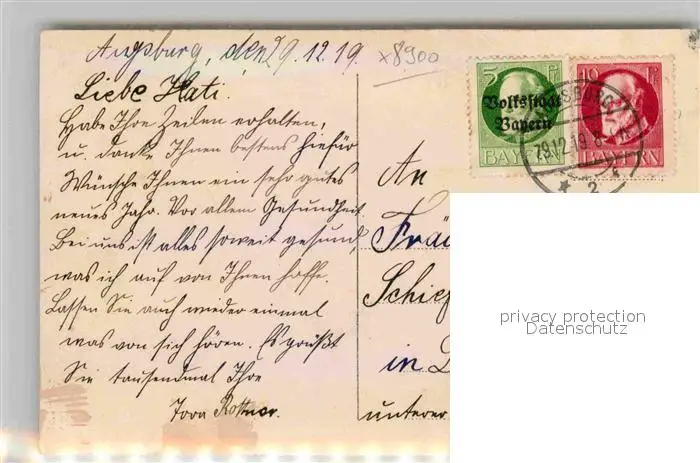 Augsburg, den 29.12.19.
x8900
Liebe Hati.
Habe Ihre Zeilen erhalten,
u. danke Ihnen bestens hiefür
Wünsche Ihnen ein sehr gutes
neues Jahr. Vor allem Gesundheit.
Bei uns ist alles soweit gesund,
was ich auf von Ihnen hoffe.
Lassen Sie auch wieder einmal
was von sich hören. Es grüßt
Sie tausendmal Ihre
Rottner.
5 Pf
Volksstaat
Bayern
BAYERN
10 Pf
BAYERN
29.12.19
2
An
Frä
Schief
in
unterer
privacy protection
Datenschutz